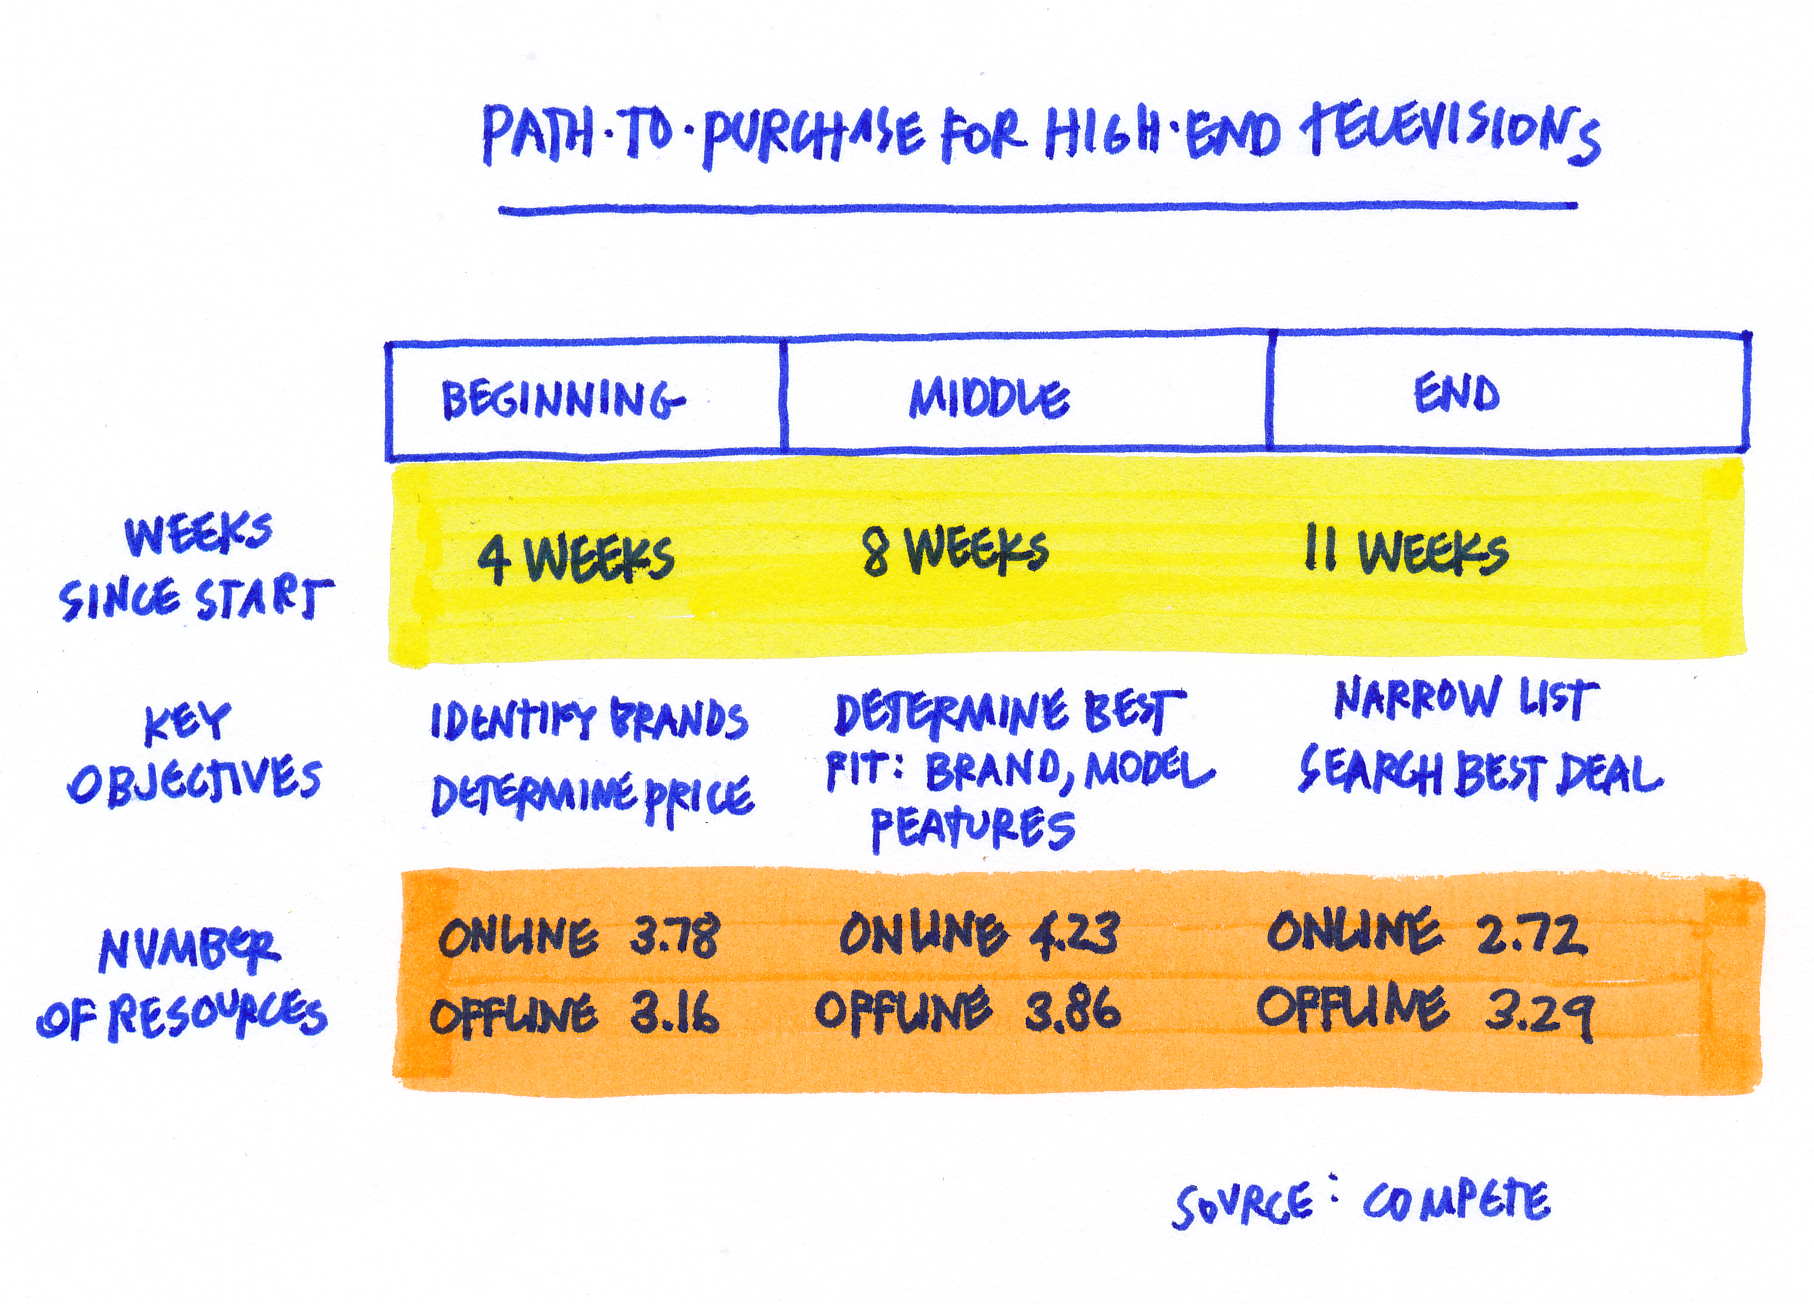 PATH·TO·PURCHASE FOR HIGH·END TELEVISIONS
BEGINNING MIDDLE END
WEEKS
SINCE START
4 WEEKS 8 WEEKS 11 WEEKS
KEY
OBJECTIVES
IDENTIFY BRANDS
DETERMINE PRICE
DETERMINE BEST
FIT: BRAND, MODEL
FEATURES
NARROW LIST
SEARCH BEST DEAL
NUMBER
OF RESOURCES
ONLINE 3.78 ONLINE 4.23 ONLINE 2.72
OFFLINE 3.16 OFFLINE 3.86 OFFLINE 3.29
SOURCE: COMPETE